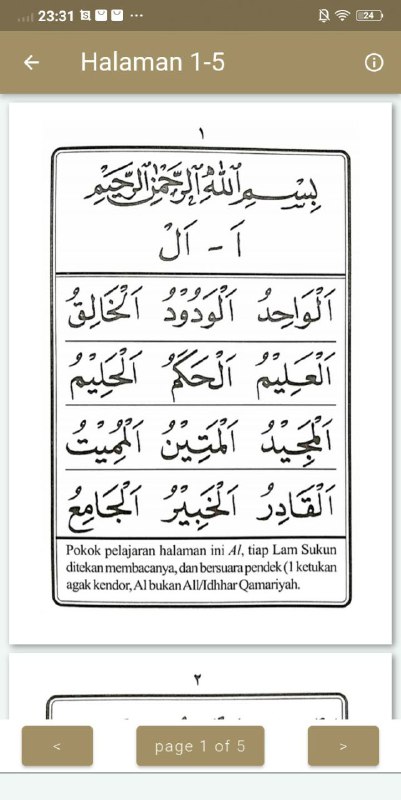 23:31 ... 24
Halaman 1-5
١
بِسْمِ اللهِ الرَّحْمٰنِ الرَّحِيْمِ
اَ - اَلْ
اَلْوَاحِدُ اَلْوَدُوْدُ اَلْخَالِقُ
اَلْعَلِيْمُ اَلْحَكَمُ اَلْحَلِيْمُ
اَلْمَجِيْدُ اَلْمَتِيْنُ اَلْمُمِيْتُ
اَلْقَادِرُ اَلْخَبِيْرُ اَلْجَامِعُ
Pokok pelajaran halaman ini Al, tiap Lam Sukun
ditekan membacanya, dan bersuara pendek (1 ketukan
agak kendor, Al bukan All/Idhhar Qamariyah.
٢
< page 1 of 5 >